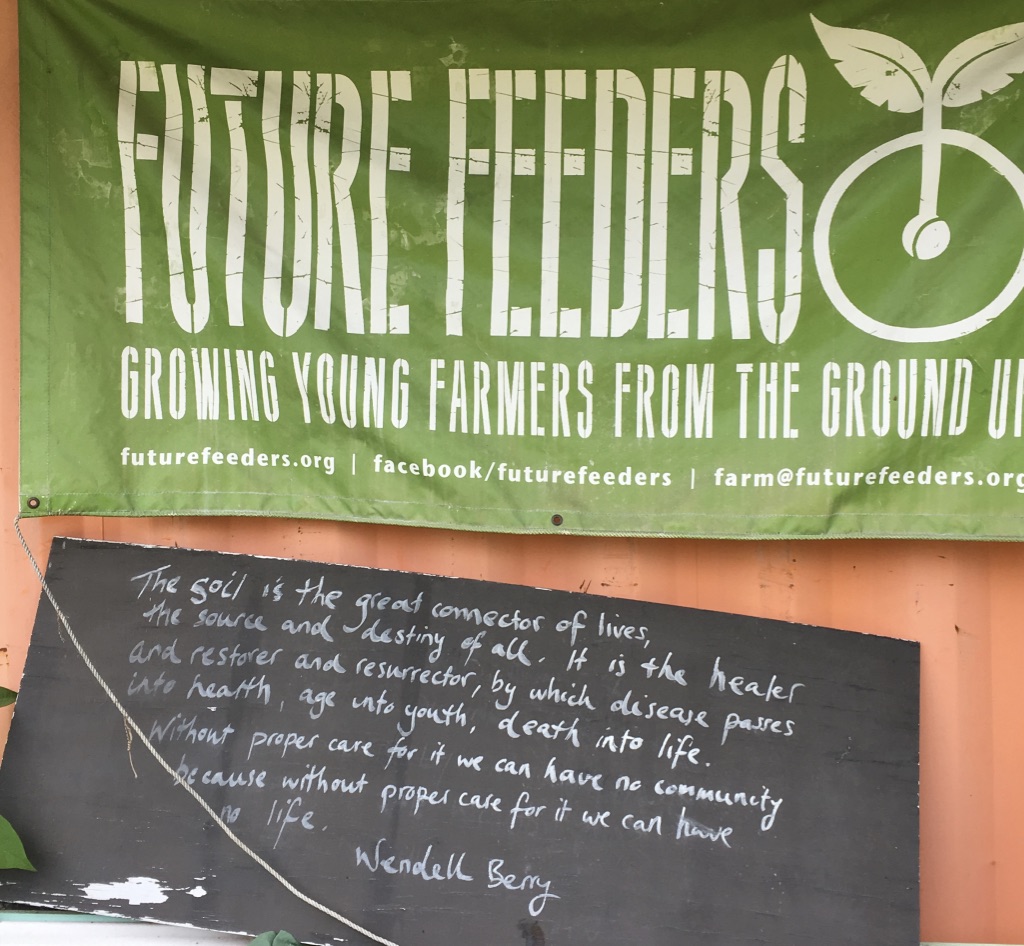 FUTURE FEEDERS
GROWING YOUNG FARMERS FROM THE GROUND U
futurefeeders.org | facebook/futurefeeders | farm@futurefeeders.org
The soil is the great connector of lives,
the source and destiny of all. It is the healer
and restorer and resurrector, by which disease passes
into health, age into youth, death into life.
Without proper care for it we can have no community
because without proper care for it we can have
no life.
Wendell Berry